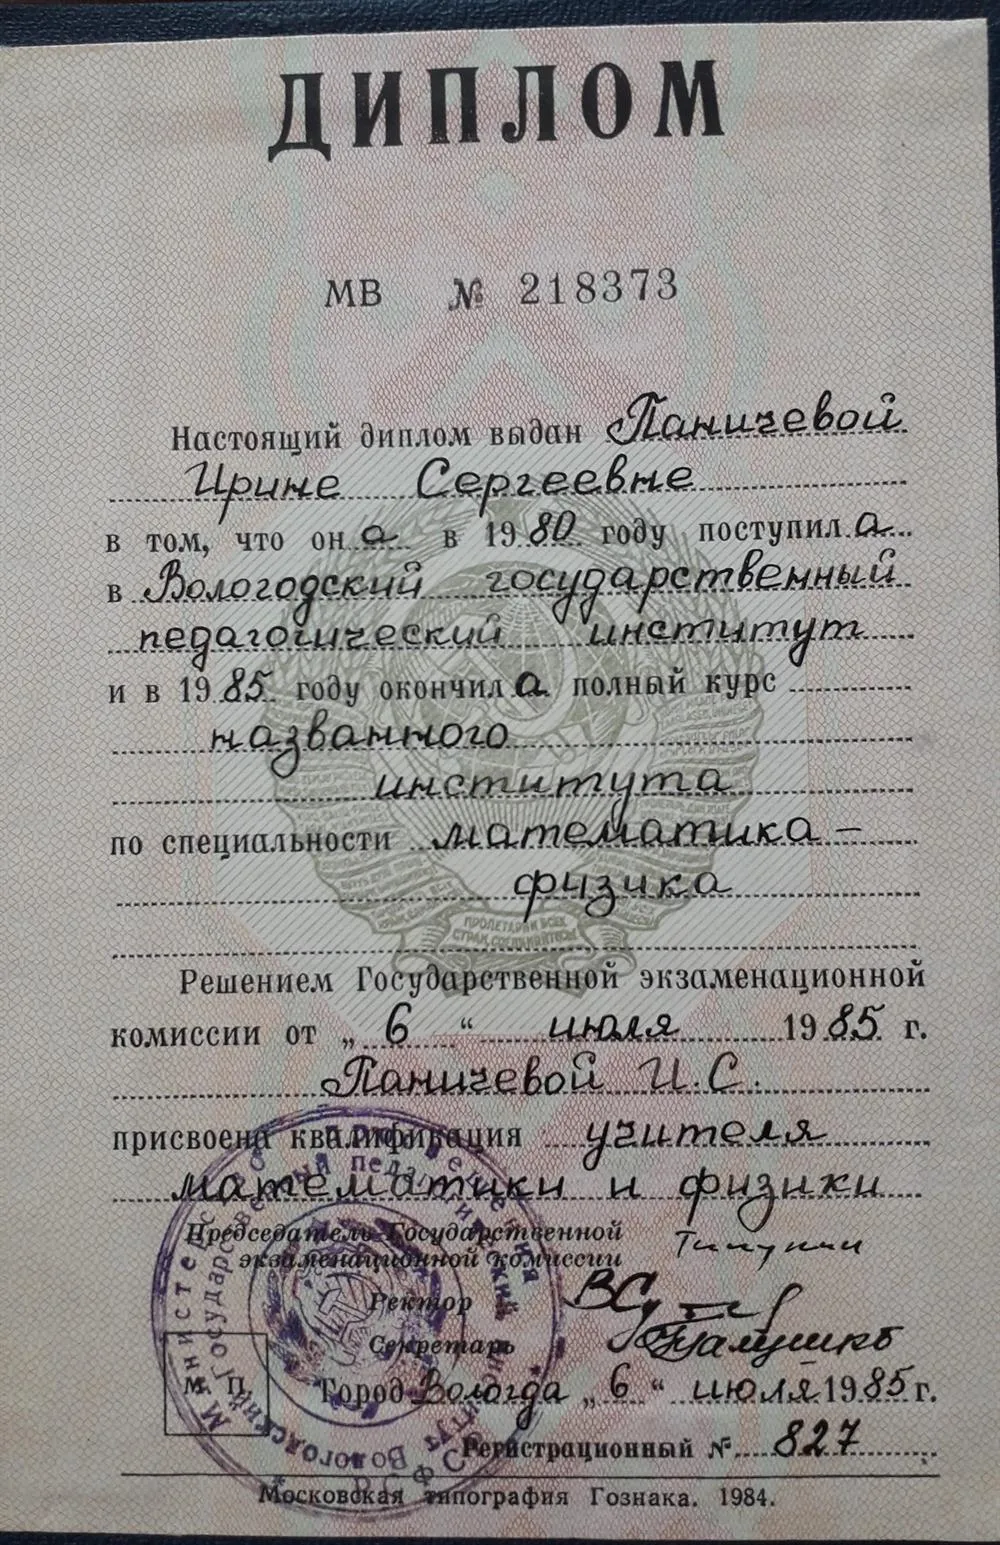 ДИПЛОМ
МВ № 218373
Настоящий диплом выдан Паничевой
Ирине Сергеевне
в том, что она в 1980 году поступила
в Вологодский государственный
педагогический институт
и в 1985 году окончила полный курс
названного
института
по специальности математика –
физика
ПРОЛЕТАРИИ ВСЕХ
СТРАН, СОЕДИНЯЙТЕСЬ!
Решением Государственной экзаменационной
комиссии от „6“ июля 1985 г.
Паничевой И.С.
присвоена квалификация учителя
математики и физики
Председатель Государственной
экзаменационной комиссии
Ректор
Секретарь
М П
Город Вологда „6“ июля 1985 г.
Регистрационный № 827
Московская типография Гознака. 1984.